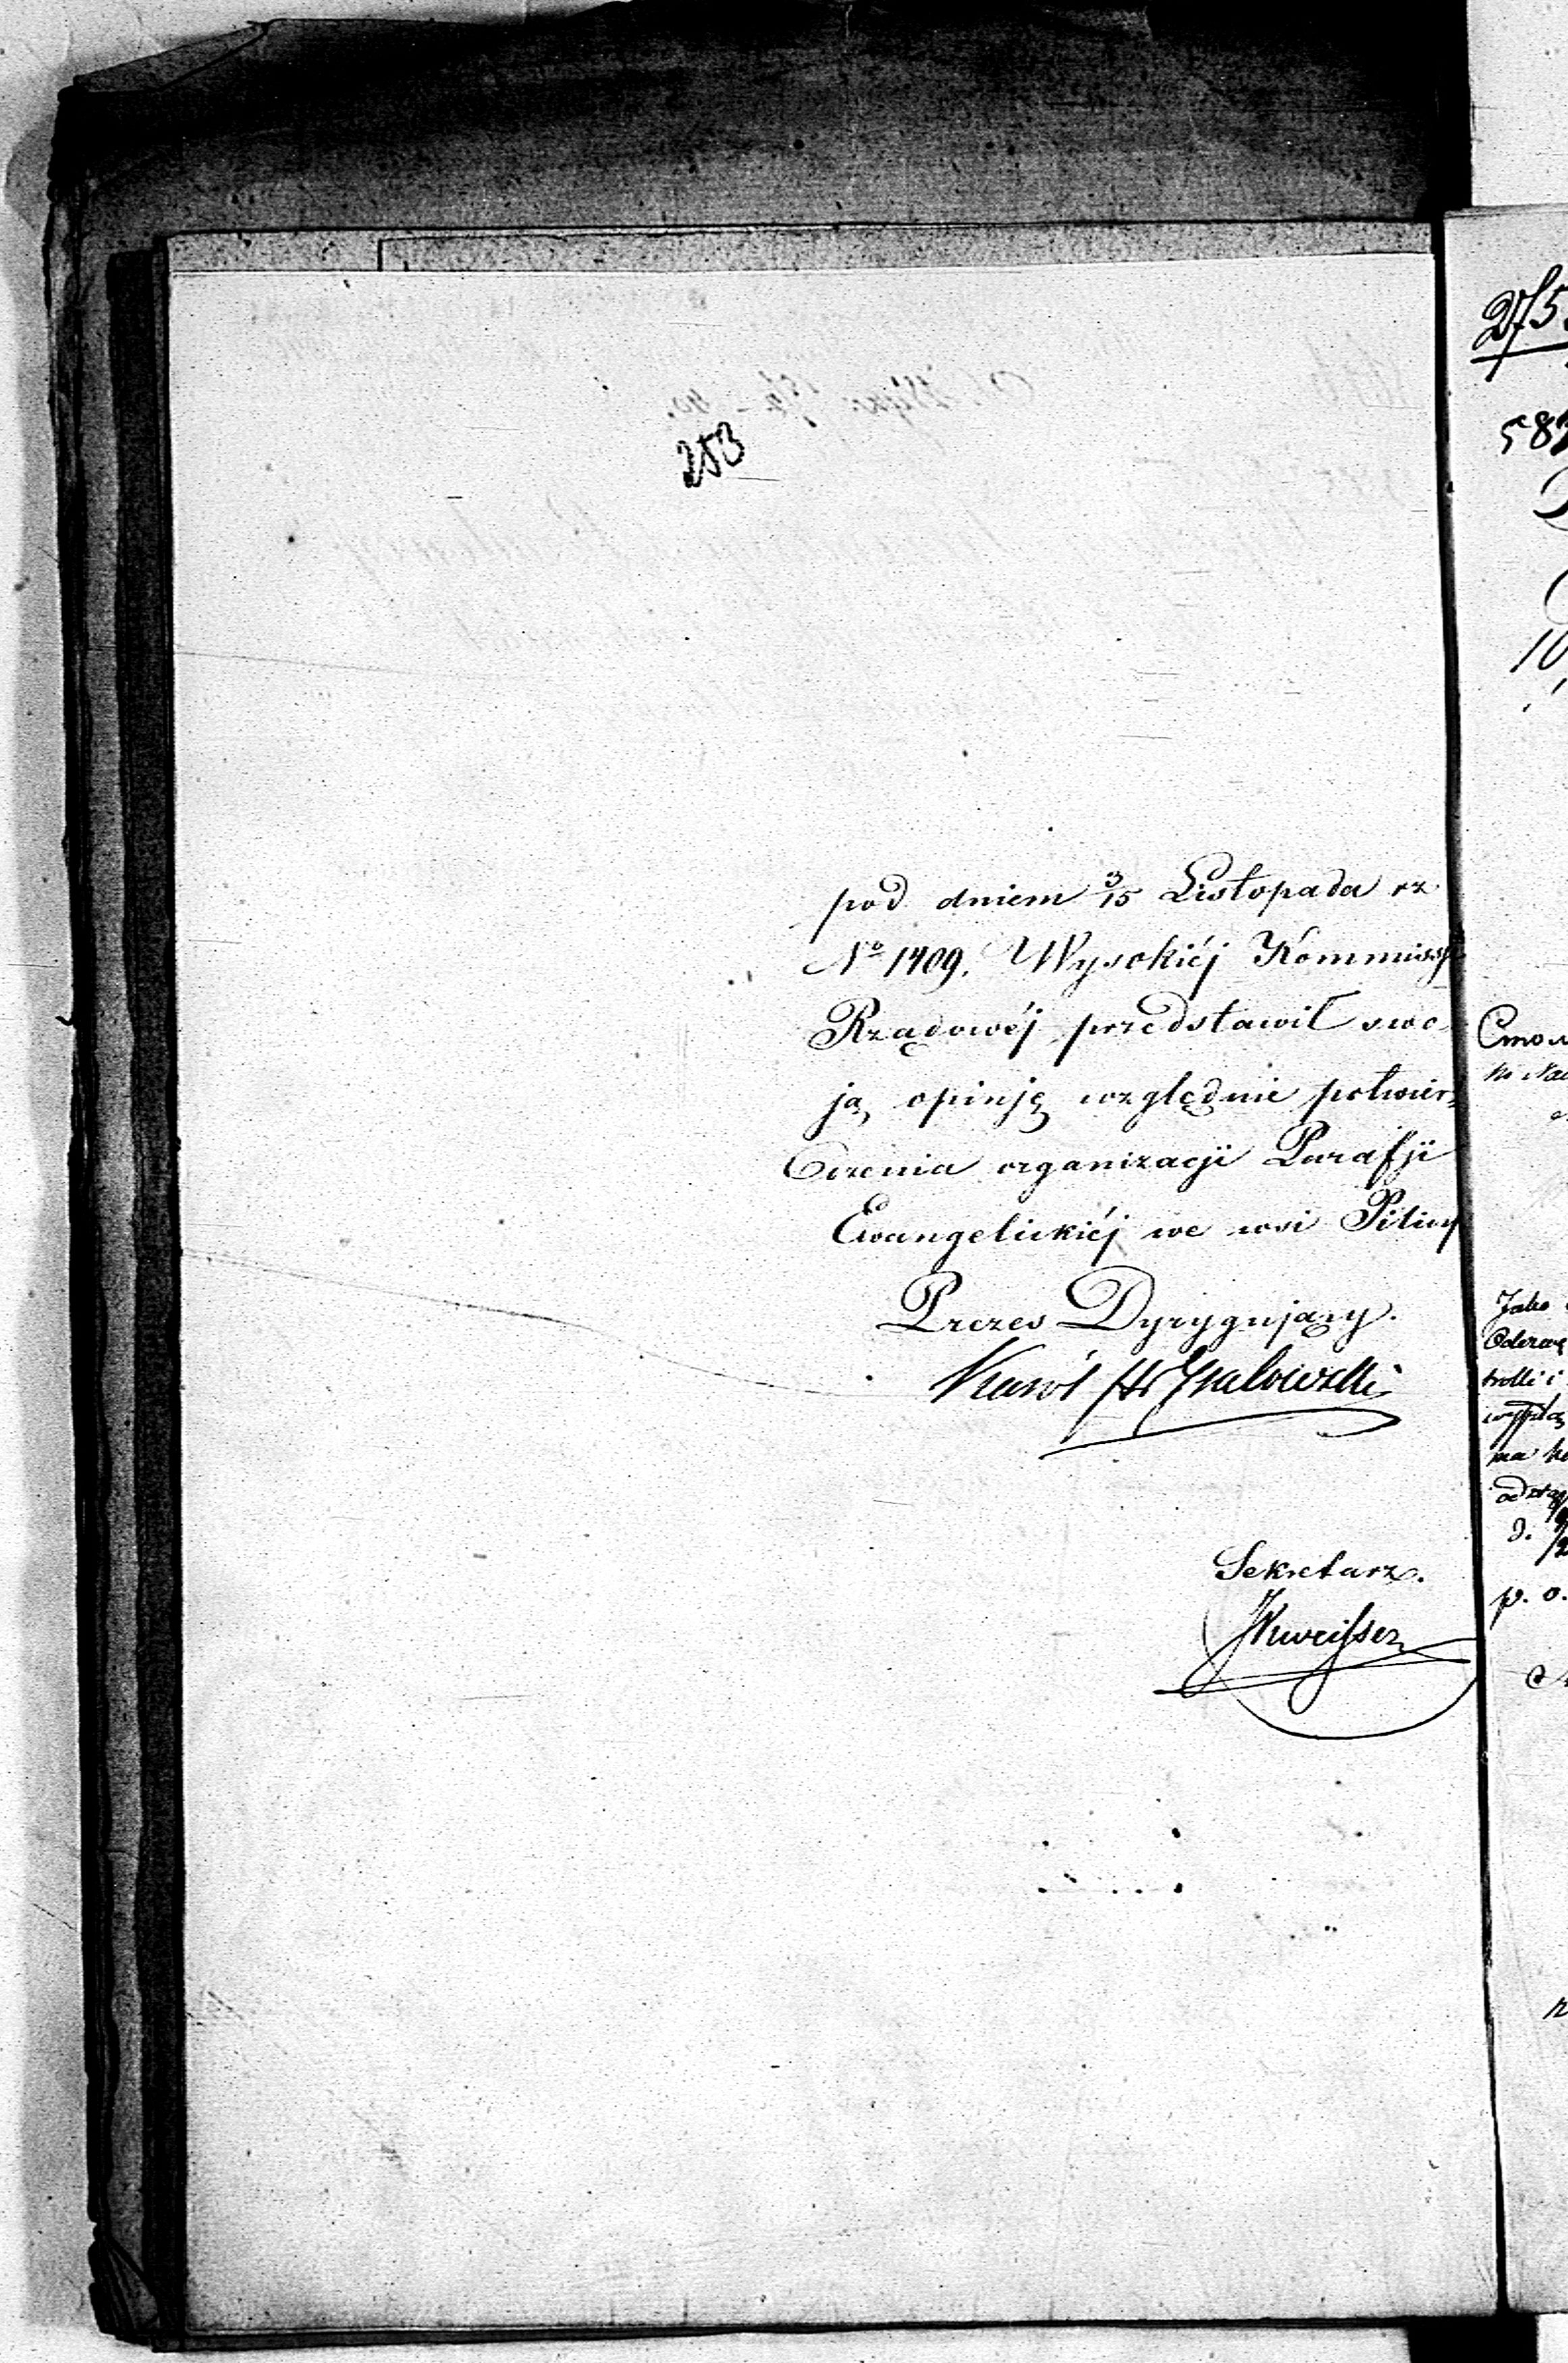 253
pod dniem 3/15 Listopada rz
No 1409. Wysokiéj Kommissyi
Rządowéj przedstawił swo-
ją opinję względnie potwier-
dzenia organizacji Parafji
Ewangelickiéj we wsi Pilicy
Prezes Dyrygujący.
Karól
Sekretarz.
275
582
10
Jako
p. o.